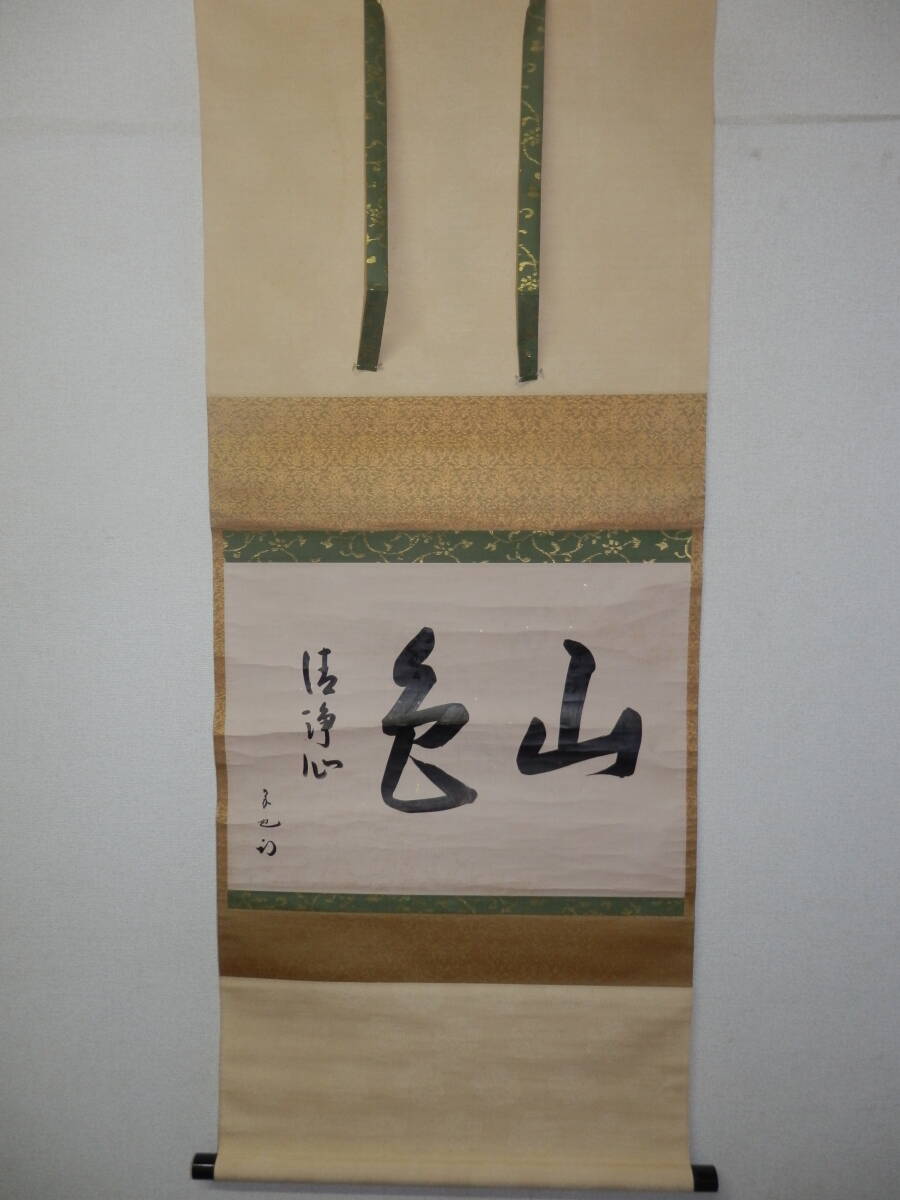 山色
清浄心